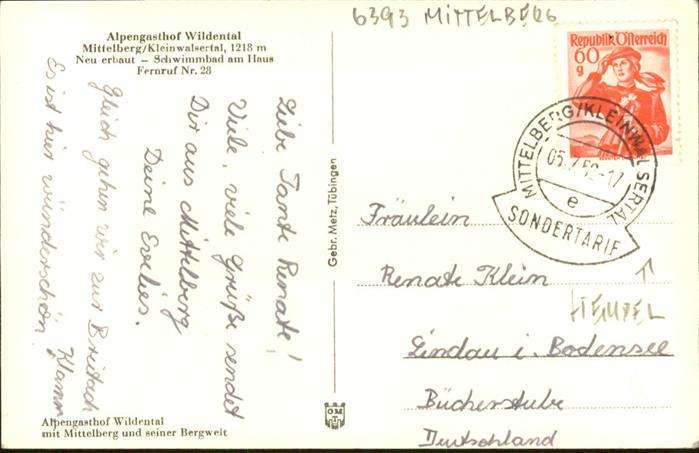 6393 MITTELBERG
Alpengasthof Wildental
Mittelberg/Kleinwalsertal, 1218 m
Neu erbaut – Schwimmbad am Haus
Fernruf Nr. 28
Liebe Tante Renate!
Viele, viele Grüße sendet
Dir aus Mittelberg
Deine Evelies.
Gleich gehen wir zur Breitach
Klamm
Es ist hier wunderschön
Alpengasthof Wildental
mit Mittelberg und seiner Bergwelt
Gebr. Metz, Tübingen
GM
Republik Österreich
60
g
MITTELBERG/KLEINWALSERTAL
05.7.52-17
e
SONDERTARIF
STEMPEL
Fräulein
Renate Klein
Lindau i. Bodensee
Bücherstube
Deutschland